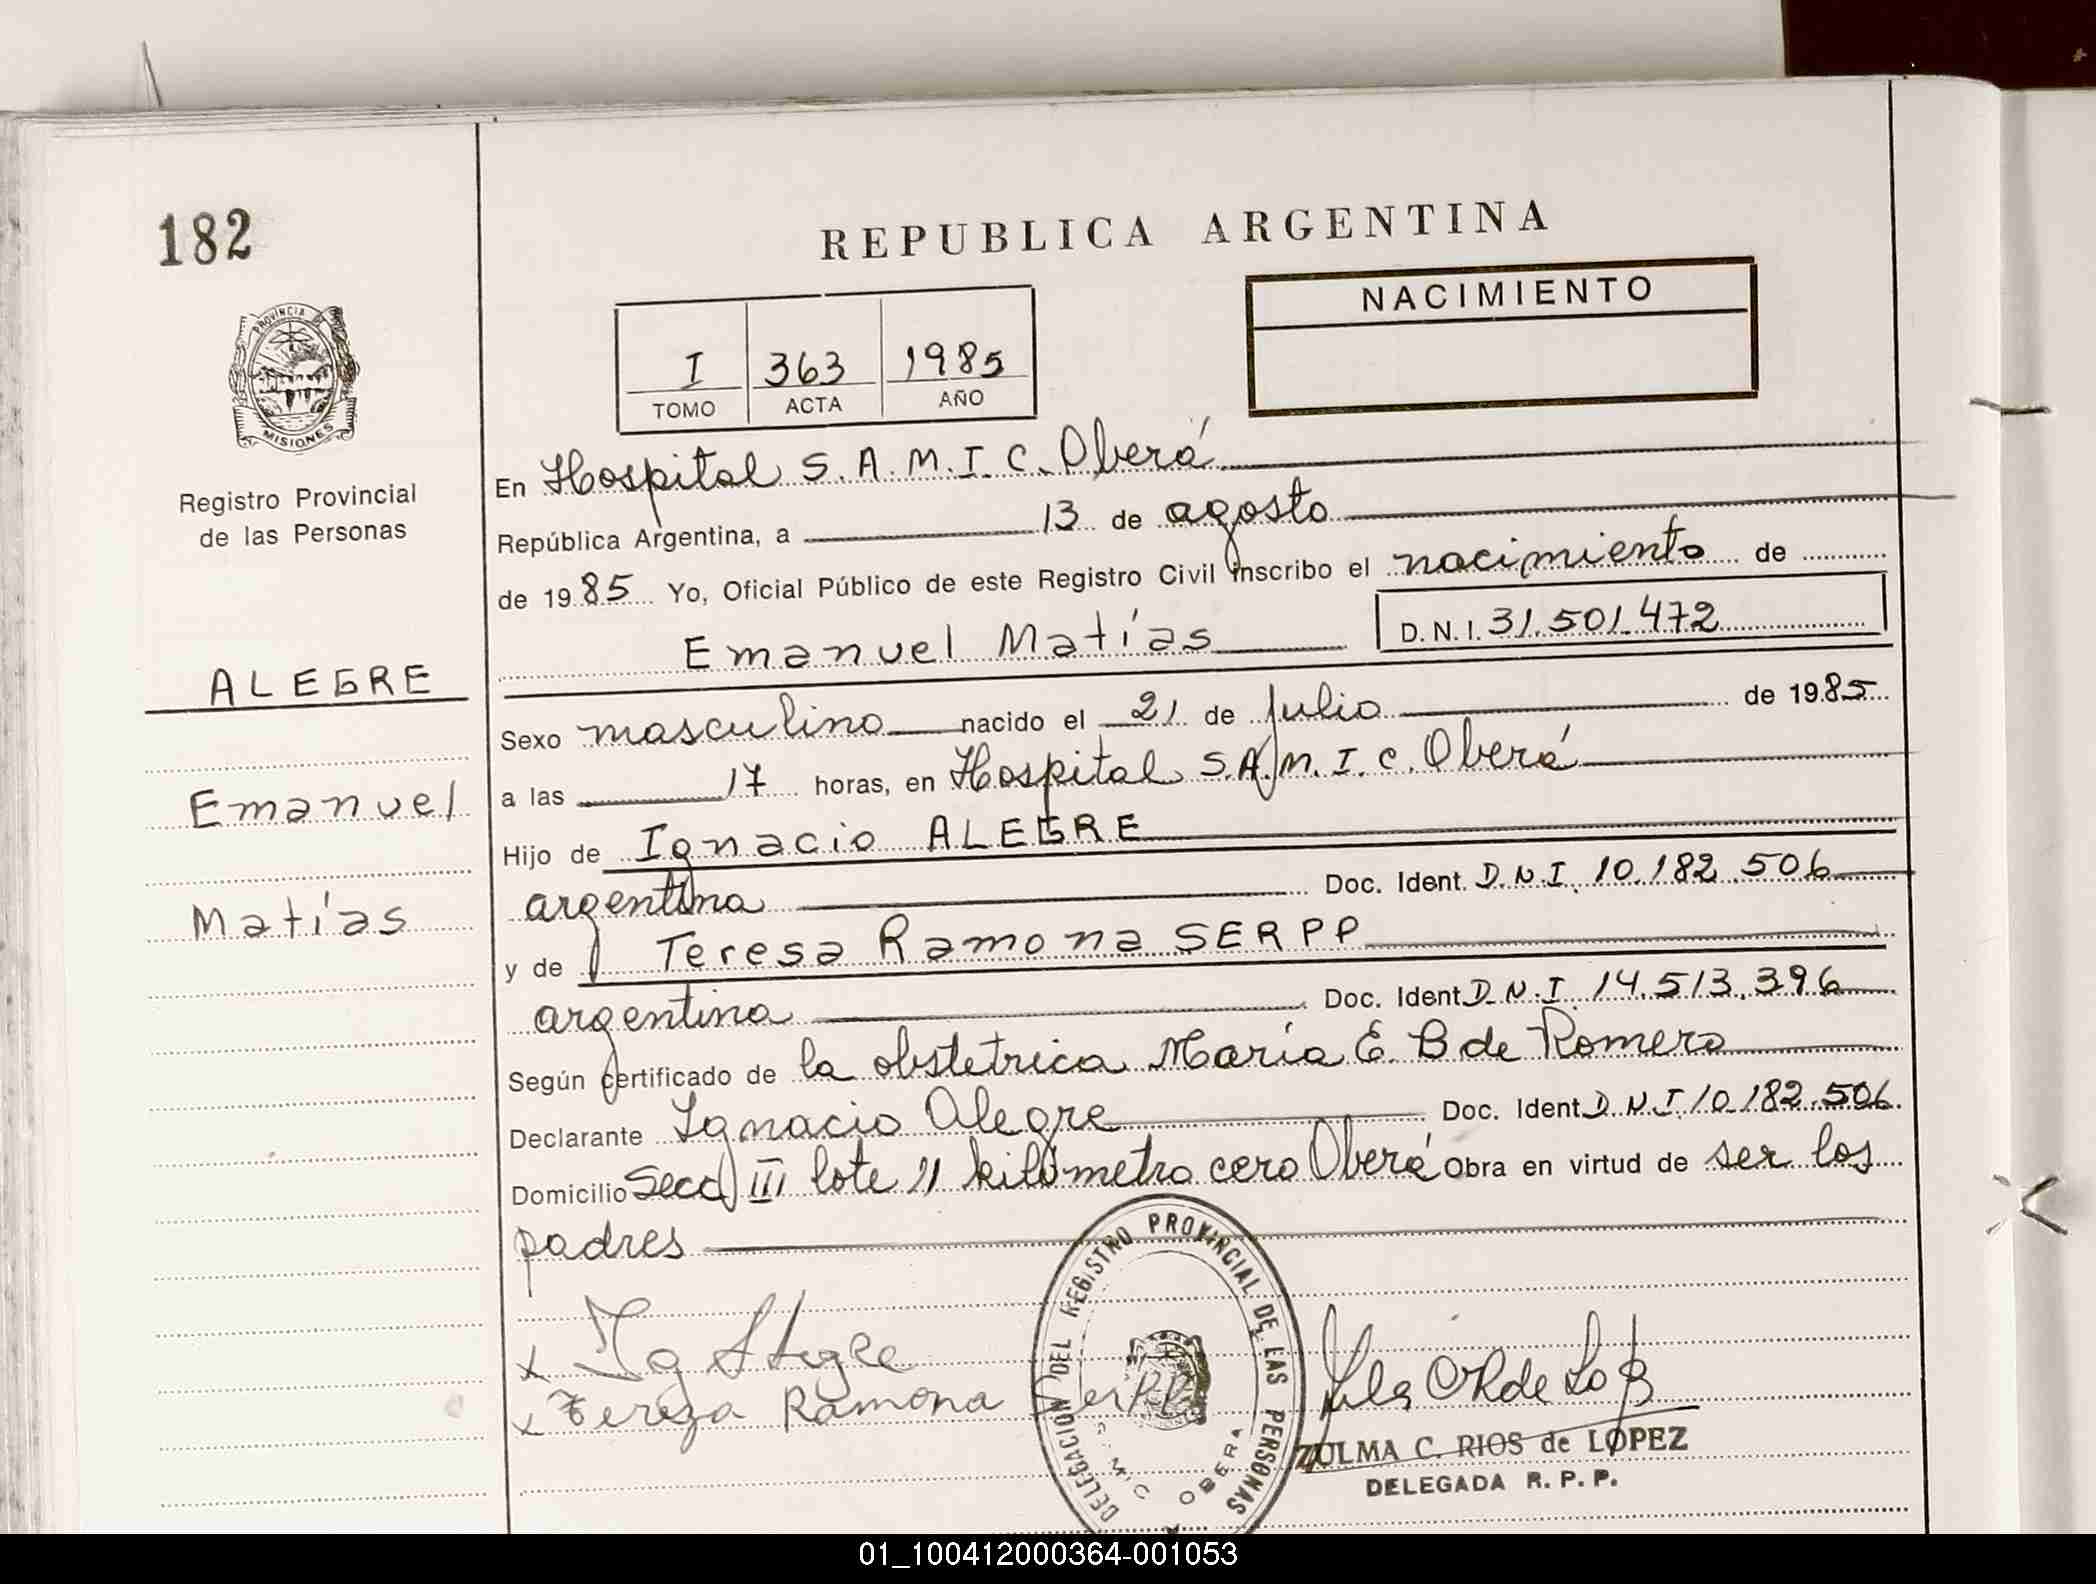 182
REPUBLICA ARGENTINA
NACIMIENTO
I 363 1985
TOMO ACTA AÑO
PROVINCIA DE
MISIONES
Registro Provincial
de las Personas
ALEGRE
Emanuel
Matías
En Hospital S.A.M.I.C. Oberá
República Argentina, a 13 de agosto
de 1985 Yo, Oficial Público de este Registro Civil inscribo el nacimiento de
Emanuel Matías D.N.I. 31.501.472
Sexo masculino nacido el 21 de Julio de 1985
a las 17 horas, en Hospital S.A.M.I.C. Oberá
Hijo de Ignacio ALEGRE
argentina Doc. Ident. D.N.I. 10.182.506
y de Teresa Ramona SERPP
argentina Doc. Ident. D.N.I 14.513.396
Según certificado de la obstetrica María E. B de Romero
Declarante Ignacio Alegre Doc. Ident. D.N.I 10.182.506
Domicilio Secc III lote 11 kilómetro cero Oberá Obra en virtud de ser los
padres
x Ig Alegre
x Tereza Ramona Serpp
DELEGACION DEL REGISTRO PROVINCIAL DE LAS PERSONAS
OBERA
ZULMA C. RIOS de LOPEZ
DELEGADA R. P. P.
01_100412000364-001053